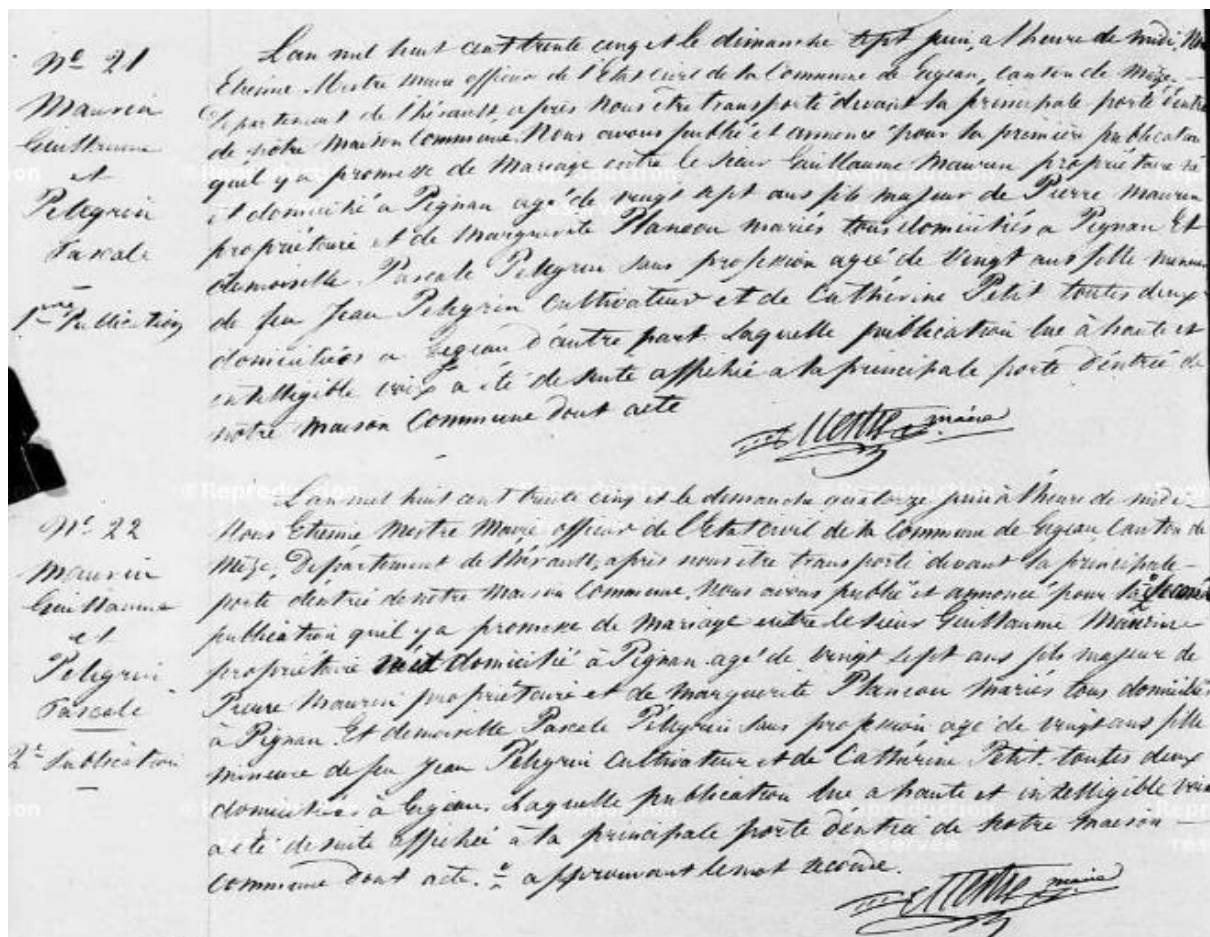 Nº 21
Maurin
Guillaume
et
Pelegrin
Pascale
1ere Publication
L'an mil huit cent trente cinq et le dimanche sept juin, a l'heure de midi, Nous
Etienne Mestre maire officier de l'Etat Civil de la Commune de Gigean, canton de Mèze
Departement de l'hérault, après nous être transporté devant la principale porte d'entrée
de notre maison Commune. Nous avons publié et annoncé pour la première publication
qu'il y a promesse de Mariage entre le sieur Guillaume Maurin propriétaire né
et domicilié a Pignan agé de vingt sept ans fils majeur de Pierre Maurin
propriétaire et de Marguerite Planeou mariés tous domiciliés a Pignan Et
demoiselle Pascale Pelegrin sans profession agée de Vingt ans fille mineure
de feu Jean Pelegrin Cultivateur et de Cathérine Petit toutes deux
domiciliées a Gigean d'autre part. Laquelle publication lue à haute et
intelligible voix a été de suite affichée a la principale porte d'entrée de
notre maison Commune dont acte
Mestre maire
Nº 22
Maurin
Guillaume
et
Pelegrin
Pascale
2e Publication
L'an mil huit cent trente cinq et le dimanche quatorze juin à l'heure de midi
Nous Etienne Mestre Maire officier de l'Etat Civil de la Commune de Gigean Canton de
Mèze, Département de l'hérault, après nous être transporté devant la principale
porte d'entrée de notre Maison Commune, Nous avons publié et annoncé pour la seconde
publication qu'il y a promesse de Mariage entre le sieur Guillaume Maurin
propriétaire domicilié à Pignan agé de vingt sept ans fils majeur de
Pierre Maurin propriétaire et de Marguerite Planeou mariés tous domiciliés
à Pignan. Et demoiselle Pascale Pélegrin sans profession agé de vingt ans fille
mineure de feu Jean Pelegrin Cultivateur et de Cathérine Petit toutes deux
domiciliées à Gigean. Laquelle publication lue a haute et intelligible voix
a été de suite affichée à la principale porte d'entrée de notre maison
commune dont acte. approuvant le mot seconde.
Mestre maire